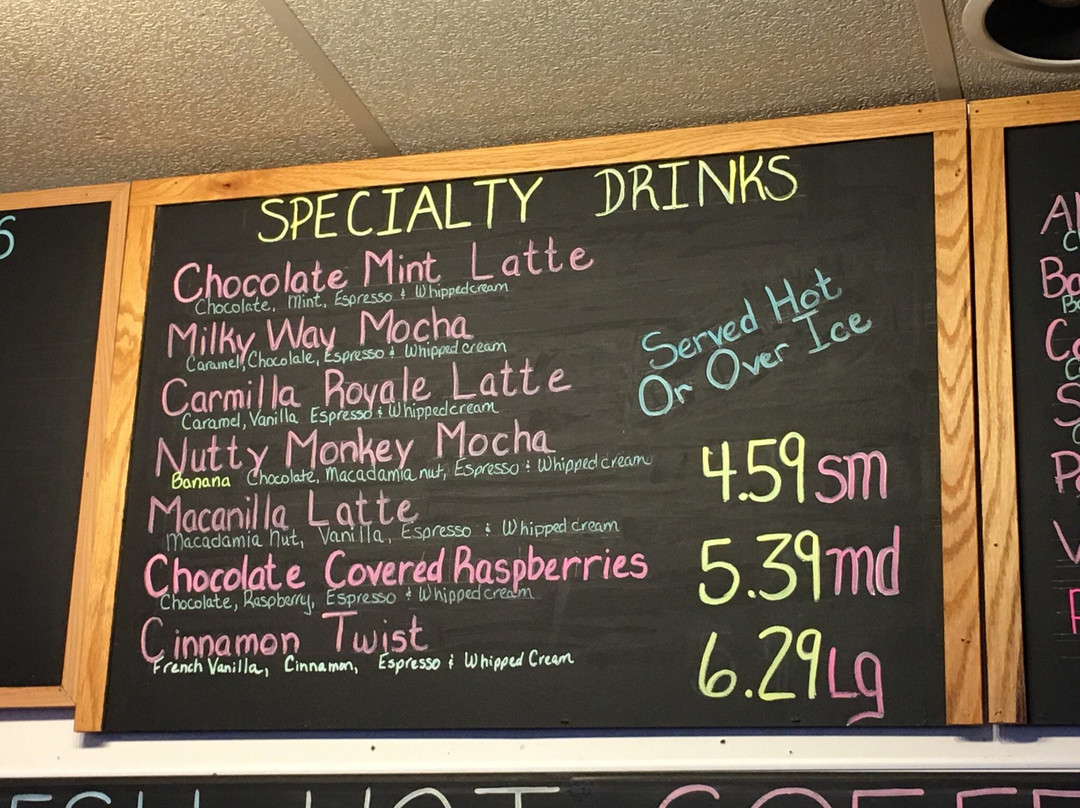 SPECIALTY DRINKS
Chocolate Mint Latte
Chocolate, Mint, Espresso & Whippedcream
Milky Way Mocha
Caramel, Chocolale, Espresso & Whipped cream
Carmilla Royale Latte
Caramel, Vanilla Espresso & Whippedcream
Nutty Monkey Mocha
Banana Chocolate, Macadamia nut, Espresso & Whipped cream
Macanilla Latte
Macadamia Nut, Vanilla, Espresso & Whipped cream
Chocolate Covered Raspberries
Chocolate, Raspberry, Espresso & Whipped cream
Cinnamon Twist
French Vanilla, Cinnamon, Espresso & Whipped Cream
Served Hot
Or Over Ice
4.59 sm
5.39 md
6.29 Lg
HOT COFFE